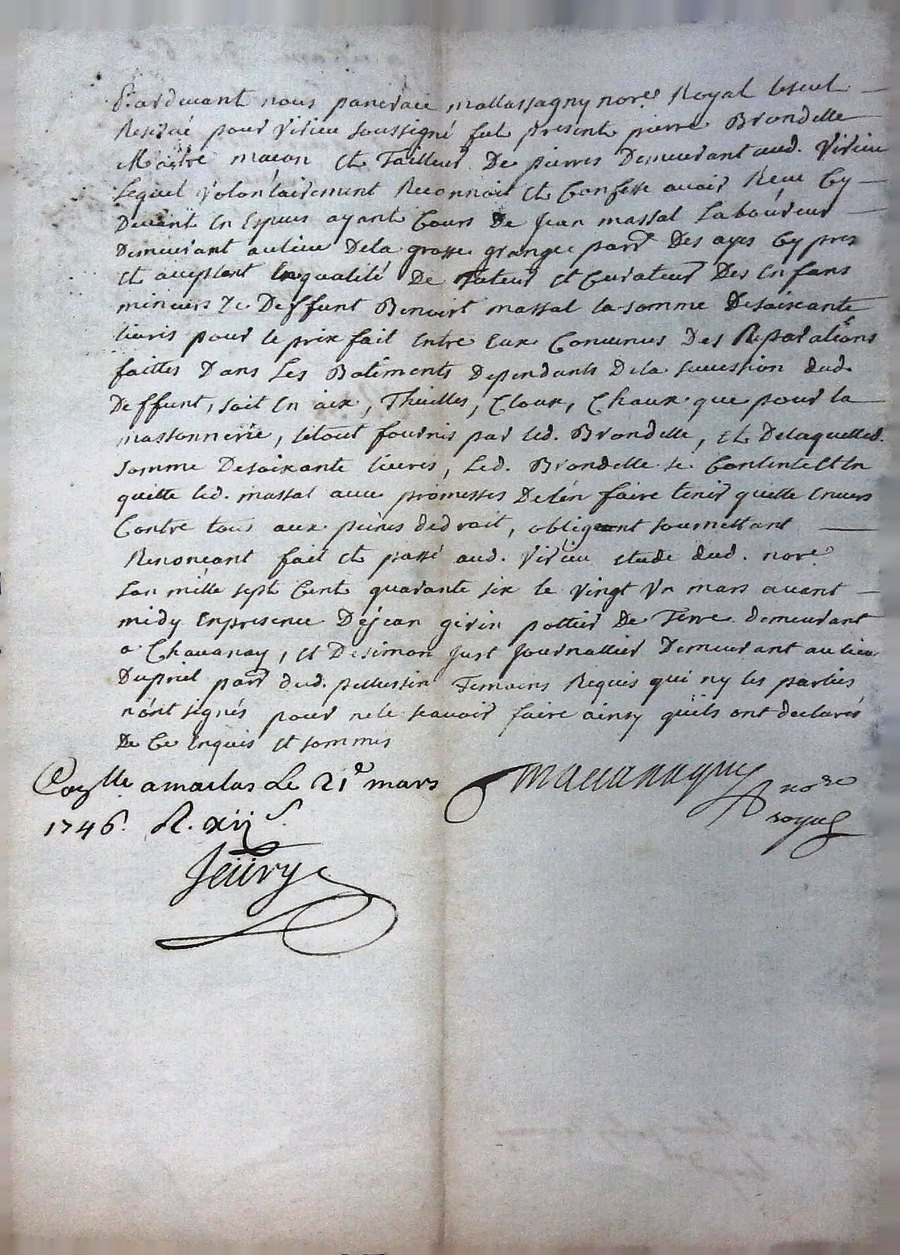 Pardevant nous pancrace mallassagny nore. Royal le seul
Reservé pour Virieu soussigné fut present pierre Brondelle
Maitre macon et Tailleur De pierres Demeurant aud. Virieu
Lequel volontairement Reconnoit et Confesse avoir Receu Cy
Devant en Especes ayant Cours de Jean massal Laboureur
Demeurant au lieu Dela grosse grange parr. Des ayes Cy pres.
et acceptant En qualité De tuteur et Curateur Des Enfans
mineurs de Deffunt Benoit massal la somme De soixante
livres pour le prix fait Entre Eux Convenus Des Reparations
faittes Dans Les Batiments Dependants De la succession dud.
Deffunt, soit En aix, Thuilles, Cloux, Chaux que pour la
massonnerie, le tout fournis par led. Brondelle, et De laquelle d.
somme De soixante livres, Led. Brondelle se Contente et En
quitte led. massal avec promesses De l'en faire tenir quitte Envers
Contre tous aux peines de droit, obligeant soumettant
Renonceant fait et passé aud. Virieu etude dud. nore.
Lan mille sept Cent quarante six le vingt Un mars avant
midy En presence De jean girin pottier De Terre demeurant
a Chavanay, et De simon Just Journallier Demeurant au lieu
Dupriel parr. dud. pellussin Temoins Requis qui ny les parties
n'ont signés pour ne le scavoir faire ainsy qu'ils ont declarés
De Ce Enquis et sommis
Conllé a maclas Le 21e. mars
1746. R. xij s.
mallassagny nore
royal
Jeüry